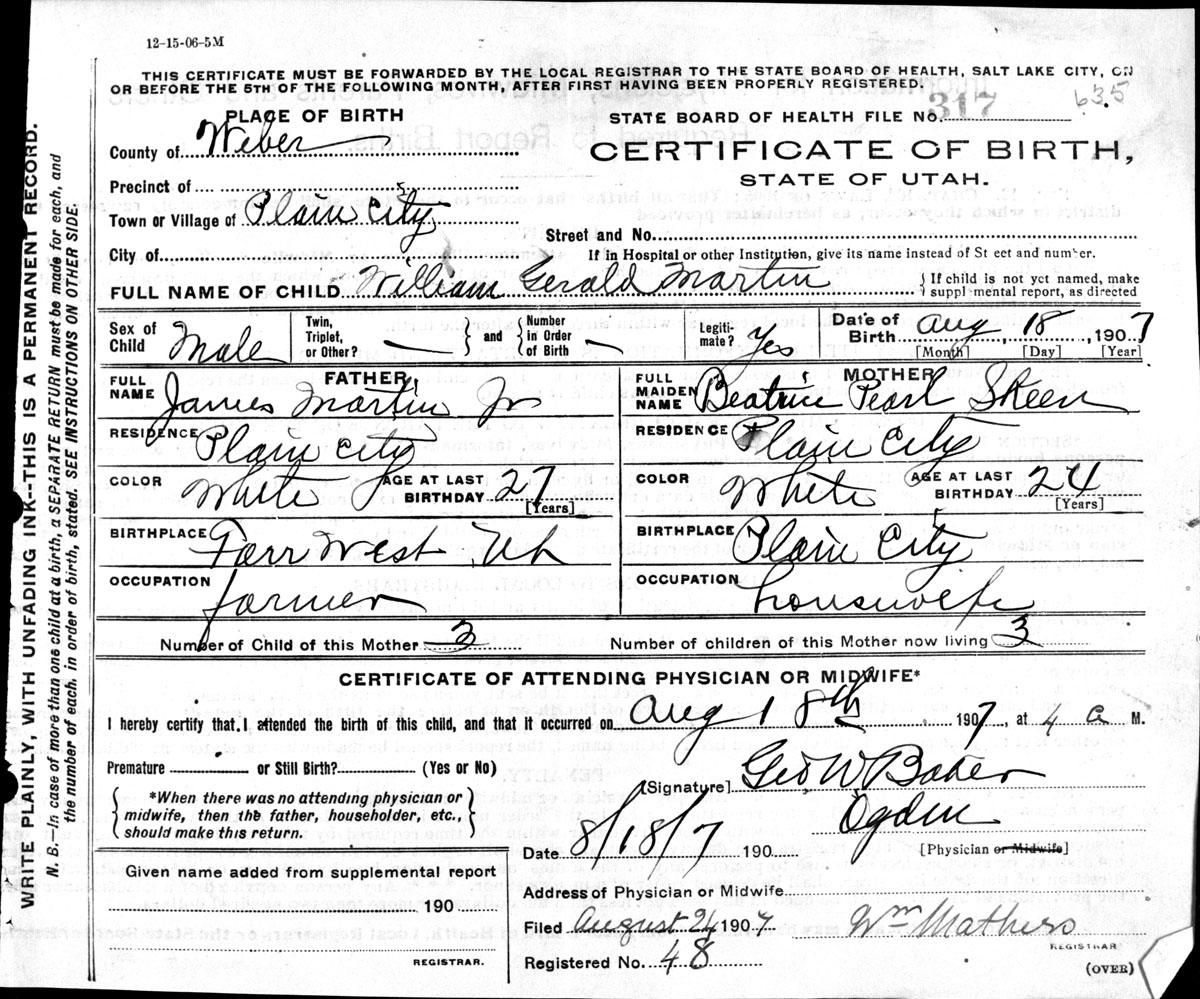 12-15-06-5M
THIS CERTIFICATE MUST BE FORWARDED BY THE LOCAL REGISTRAR TO THE STATE BOARD OF HEALTH, SALT LAKE CITY, ON
OR BEFORE THE 5TH OF THE FOLLOWING MONTH, AFTER FIRST HAVING BEEN PROPERLY REGISTERED.
635
PLACE OF BIRTH
STATE BOARD OF HEALTH FILE No. 317
County of Weber
CERTIFICATE OF BIRTH,
STATE OF UTAH.
Precinct of
Town or Village of Plain City
Street and No.
City of
If in Hospital or other Institution, give its name instead of St eet and number.
FULL NAME OF CHILD William Gerald Martin { If child is not yet named, make
suppl mental report, as directed
Sex of Child Male
Twin, Triplet, or Other?
} and {
Number in Order of Birth
Legiti- mate? Yes
Date of Birth Aug 18, 1907
[Month] [Day] [Year]
FATHER
FULL NAME James Martin Jr
RESIDENCE Plain City
COLOR White AGE AT LAST BIRTHDAY 27
[Years]
BIRTHPLACE Farr West Uh
OCCUPATION farmer
MOTHER
FULL MAIDEN NAME Beatrice Pearl Skeen
RESIDENCE Plain City
COLOR White AGE AT LAST BIRTHDAY 24
[Years]
BIRTHPLACE Plain City
OCCUPATION housewife
Number of Child of this Mother 3 Number of children of this Mother now living 3
CERTIFICATE OF ATTENDING PHYSICIAN OR MIDWIFE*
I hereby certify that I attended the birth of this child, and that it occurred on Aug 18th, 1907, at 4 a M.
Premature or Still Birth? (Yes or No)
[Signature] Geo W Baker
{ *When there was no attending physician or
midwife, then the father, householder, etc.,
should make this return. }
Ogden
Date 8/18/7 190 [Physician or Midwife]
Given name added from supplemental report
190
REGISTRAR.
Address of Physician or Midwife
Filed August 26 1907 Wm Mathers
REGISTRAR
Registered No. 48
(OVER)
WRITE PLAINLY, WITH UNFADING INK--THIS IS A PERMANENT RECORD.
N. B.—In case of more than one child at a birth, a SEPARATE RETURN must be made for each, and
the number of each, in order of birth, stated. SEE INSTRUCTIONS ON OTHER SIDE.